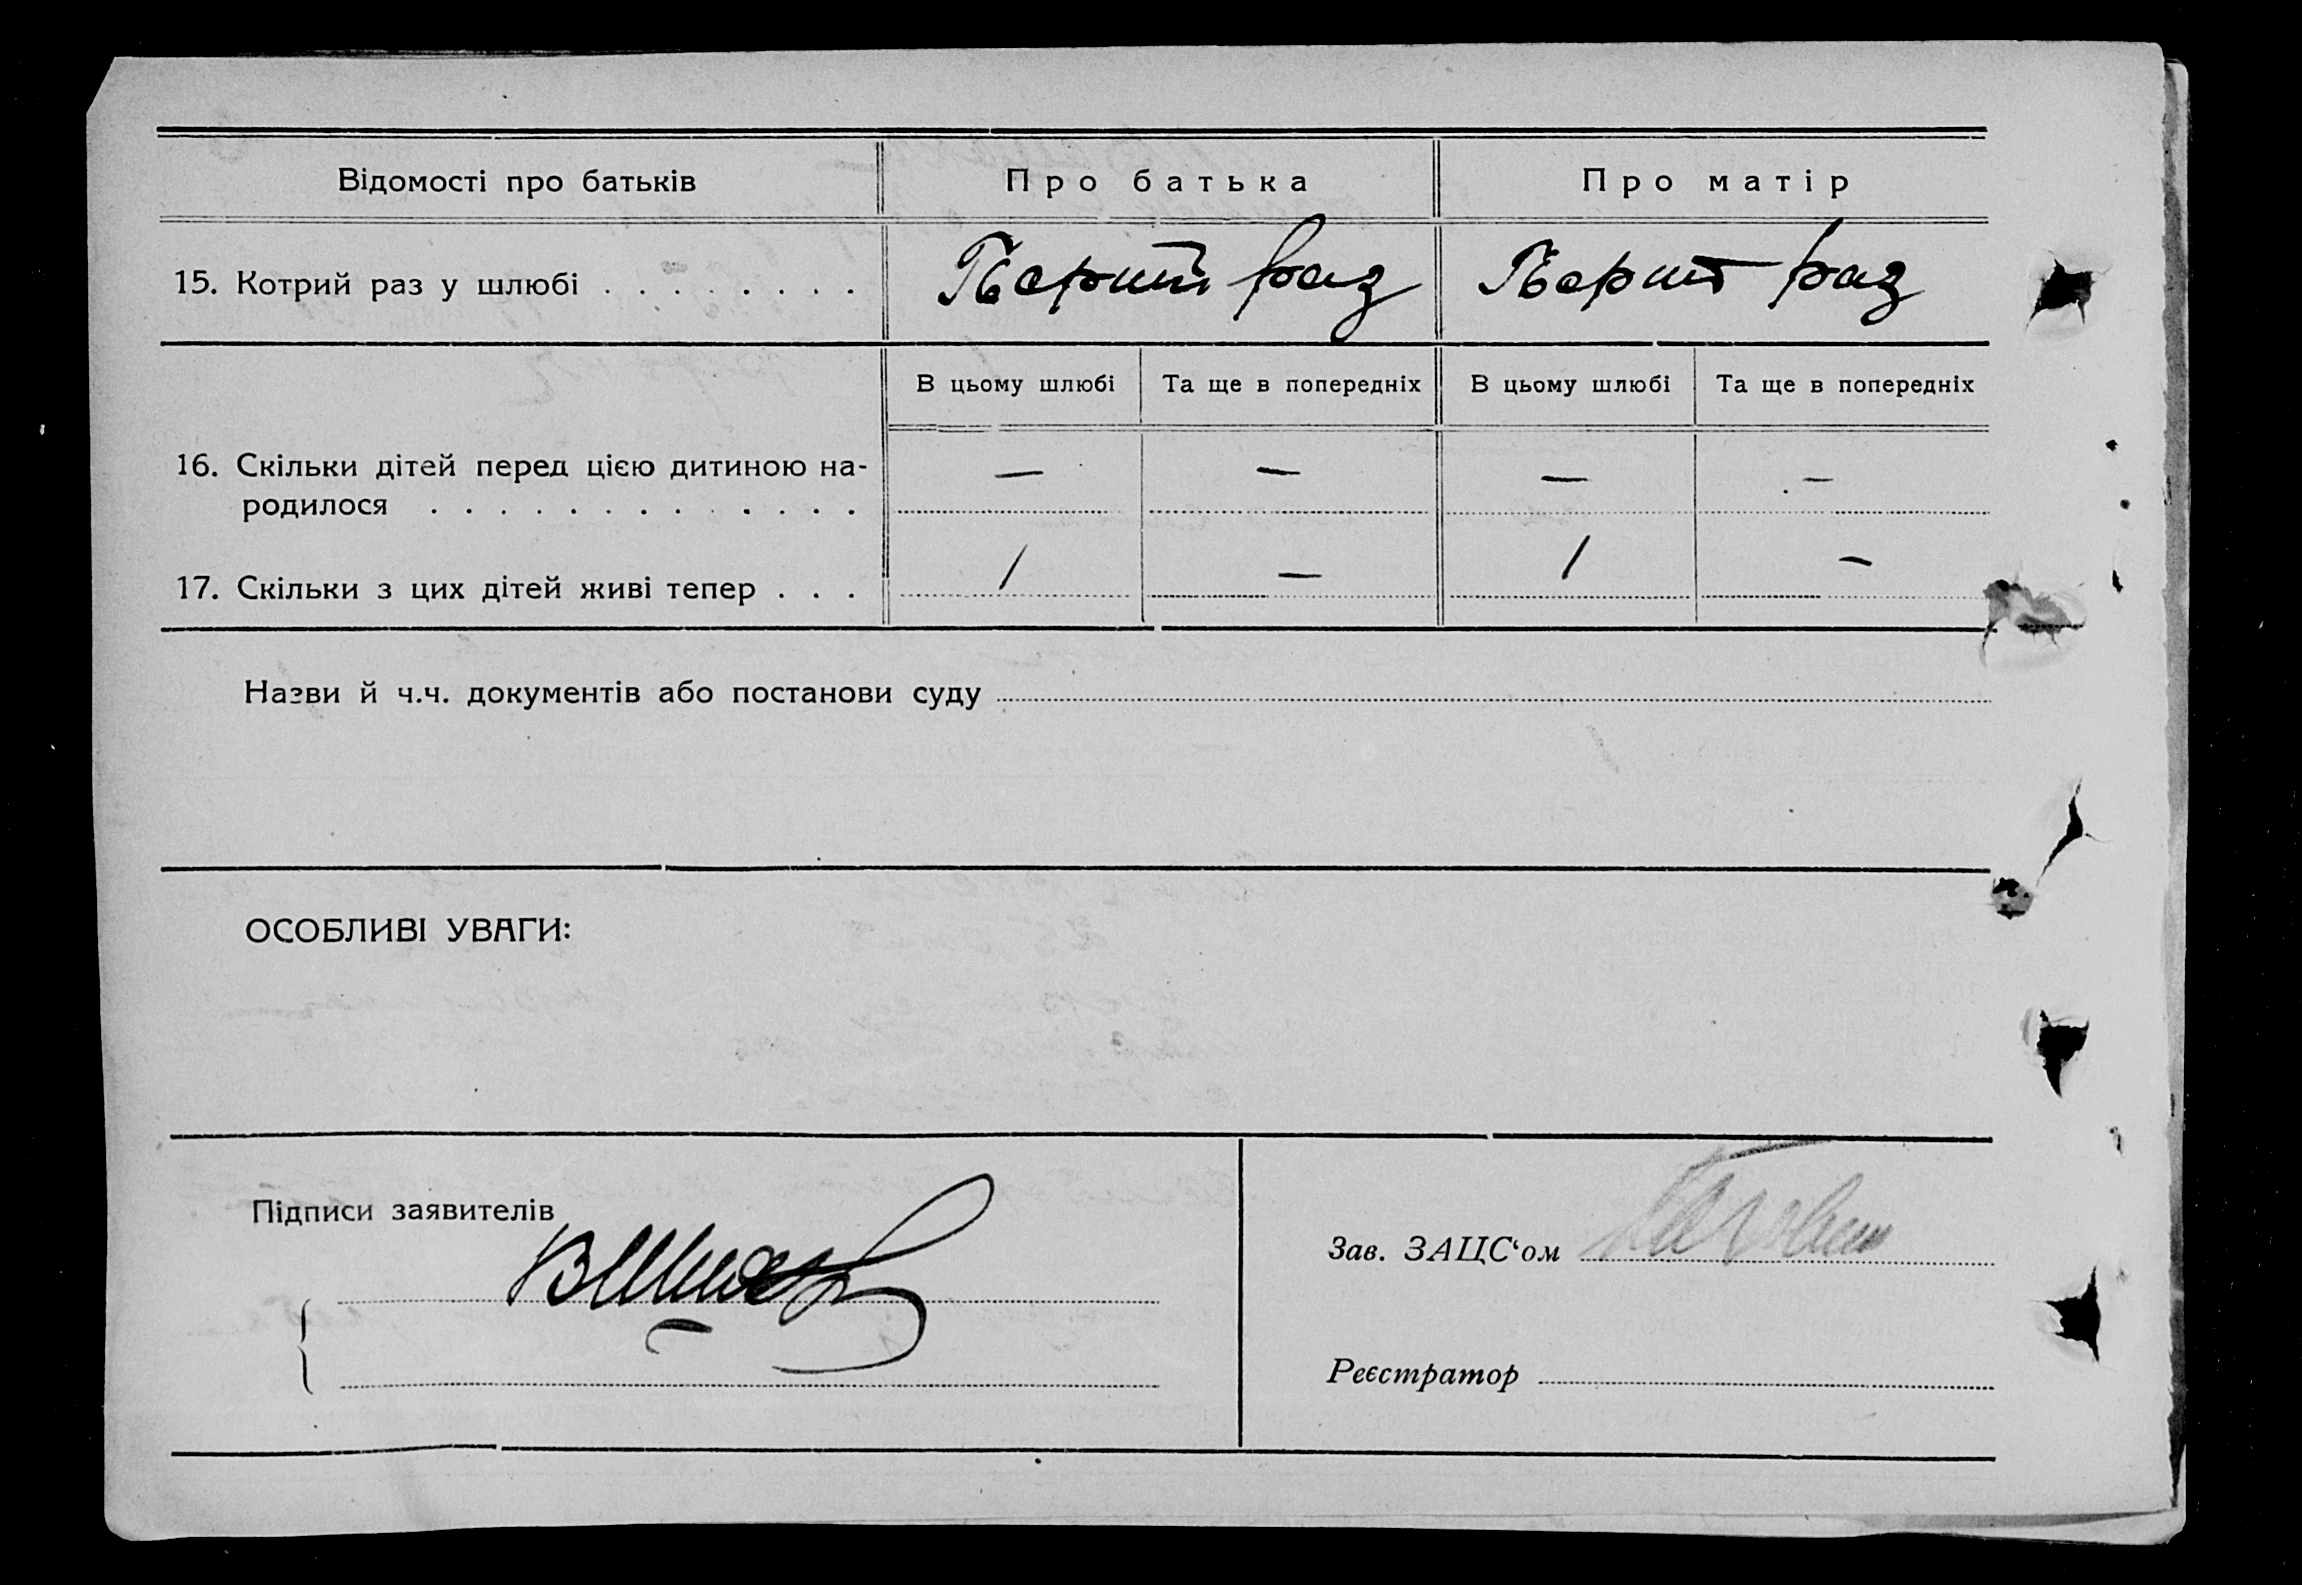 Відомості про батьків Про батька Про матір
15. Котрий раз у шлюбі . . . . . . . . Перший раз Перший раз
В цьому шлюбі Та ще в попередніх В цьому шлюбі Та ще в попередніх
16. Скільки дітей перед цією дитиною на- — — — —
родилося . . . . . . . . . . . . .
17. Скільки з цих дітей живі тепер . . . 1 — 1 —
Назви й ч.ч. документів або постанови суду
ОСОБЛИВІ УВАГИ:
Підписи заявителів
Зав. ЗАЦС‘ом
Реєстратор